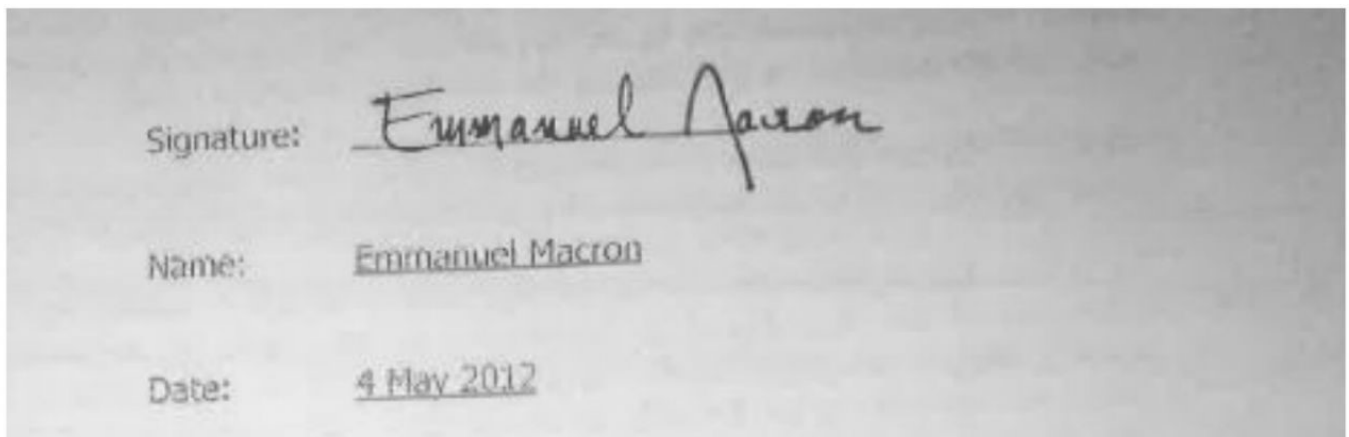 Signature: Emmanuel Macron
Name: Emmanuel Macron
Date: 4 May 2012